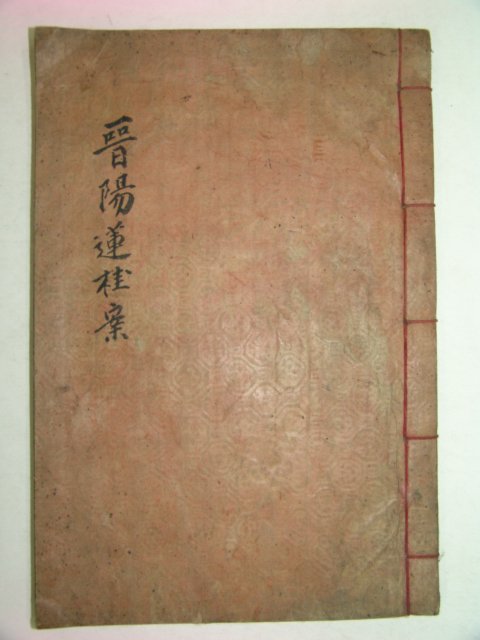 晉陽蓮桂案